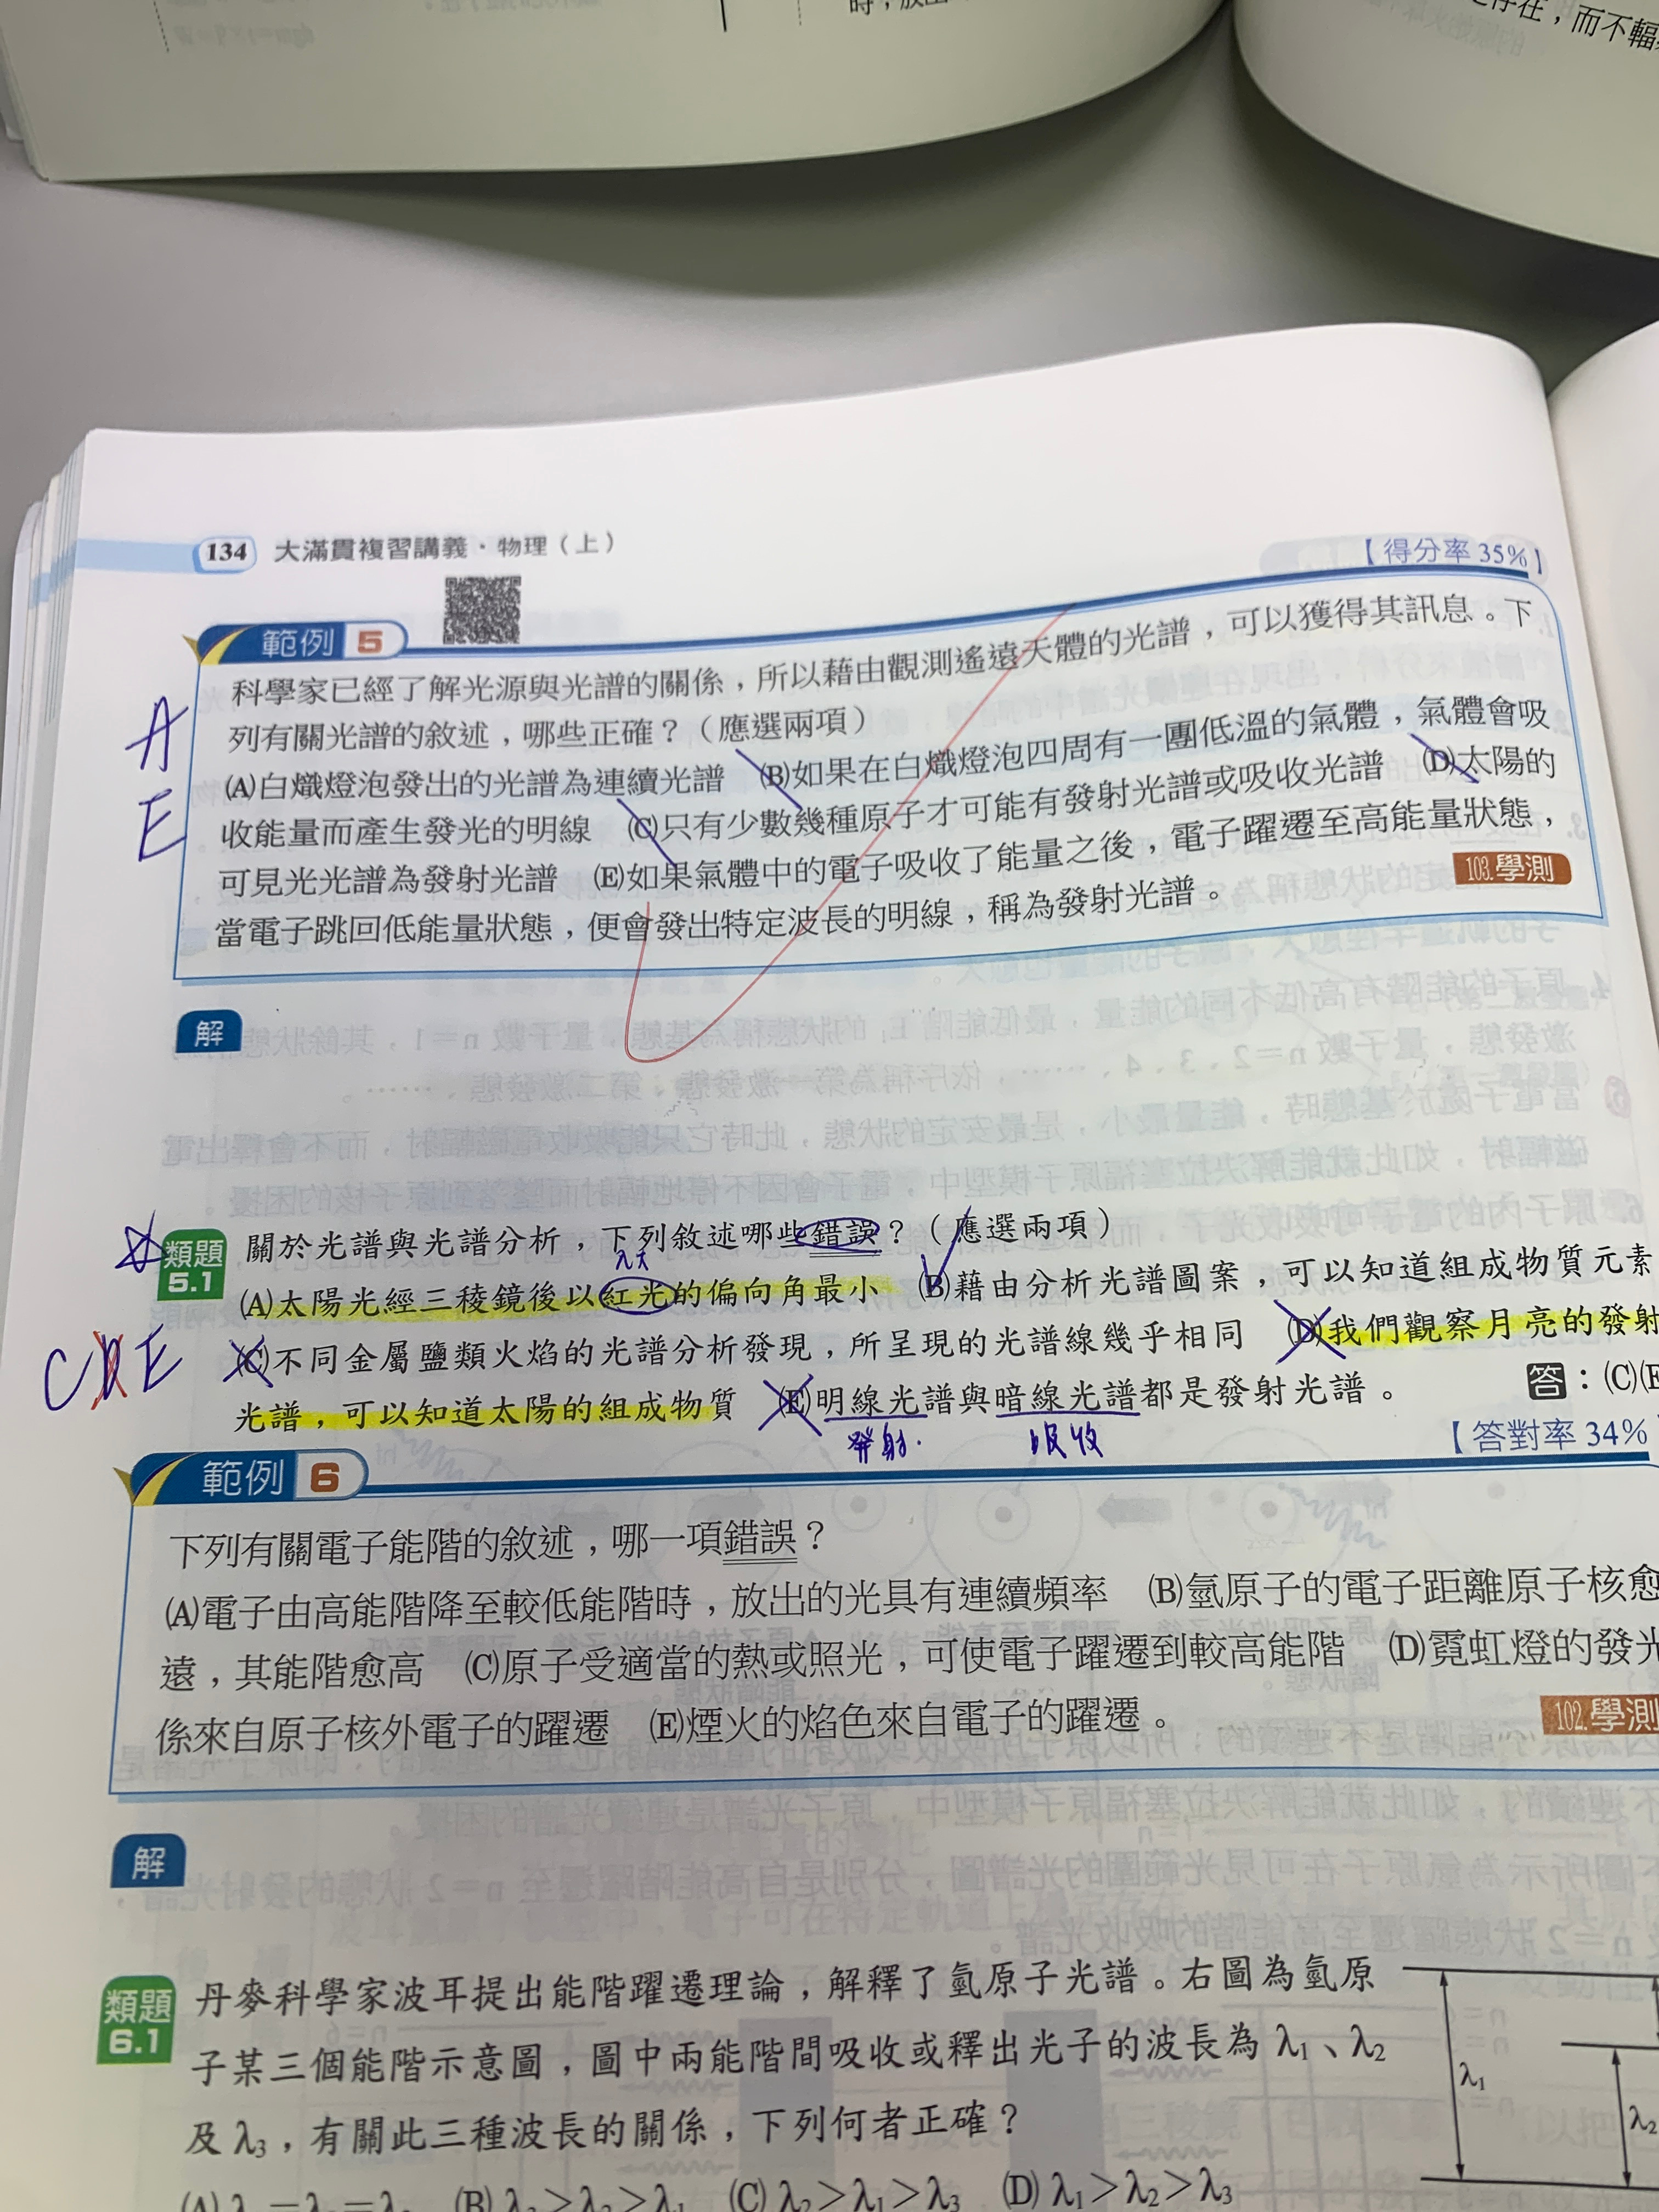 存在，而不輻
134 大滿貫複習講義．物理（上）
【得分率 35%】
範例 5
科學家已經了解光源與光譜的關係，所以藉由觀測遙遠天體的光譜，可以獲得其訊息。下
列有關光譜的敘述，哪些正確？（應選兩項）
(A)白熾燈泡發出的光譜為連續光譜 (B)如果在白熾燈泡四周有一團低溫的氣體，氣體會吸
收能量而產生發光的明線 (C)只有少數幾種原子才可能有發射光譜或吸收光譜 (D)太陽的
可見光光譜為發射光譜 (E)如果氣體中的電子吸收了能量之後，電子躍遷至高能量狀態，
當電子跳回低能量狀態，便會發出特定波長的明線，稱為發射光譜。
103.學測
A
E
解
類題 5.1
關於光譜與光譜分析，下列敘述哪些錯誤？（應選兩項）
(A)太陽光經三稜鏡後以紅光的偏向角最小 (B)藉由分析光譜圖案，可以知道組成物質元素
(C)不同金屬鹽類火焰的光譜分析發現，所呈現的光譜線幾乎相同 (D)我們觀察月亮的發射
光譜，可以知道太陽的組成物質 (E)明線光譜與暗線光譜都是發射光譜。
答：(C)(E
λ大
C D E
發射．
吸收
【答對率 34%
範例 6
下列有關電子能階的敘述，哪一項錯誤？
(A)電子由高能階降至較低能階時，放出的光具有連續頻率 (B)氫原子的電子距離原子核愈
遠，其能階愈高 (C)原子受適當的熱或照光，可使電子躍遷到較高能階 (D)霓虹燈的發光
係來自原子核外電子的躍遷 (E)煙火的焰色來自電子的躍遷。
102.學測
解
類題 6.1
丹麥科學家波耳提出能階躍遷理論，解釋了氫原子光譜。右圖為氫原
子某三個能階示意圖，圖中兩能階間吸收或釋出光子的波長為 λ1、λ2
及 λ3，有關此三種波長的關係，下列何者正確？
(C) λ2＞λ1＞λ3 (D) λ1＞λ2＞λ3
λ1
λ2